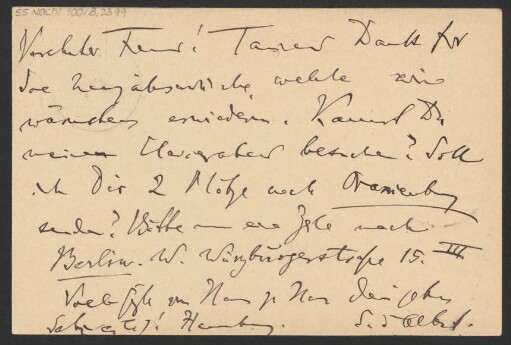 55 NACHL 100/B, 2399
Verehrter Freund! Tausend Dank für
die Neujahrswünsche, welche wir
wärmstens erwiedern. Kannst Du
meinen Clavierabend besuchen? Soll
ich Dir 2 Plätze nach Oranienburg
senden? Bitte um eine Zeile nach
Berlin. W. Würzburgerstrasse 15. III
von Haus zu Haus Dein
Hamburg. d'Albert.